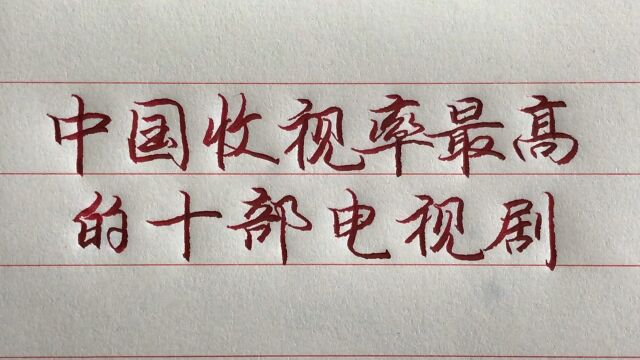 中国收视率最高
的十部电视剧